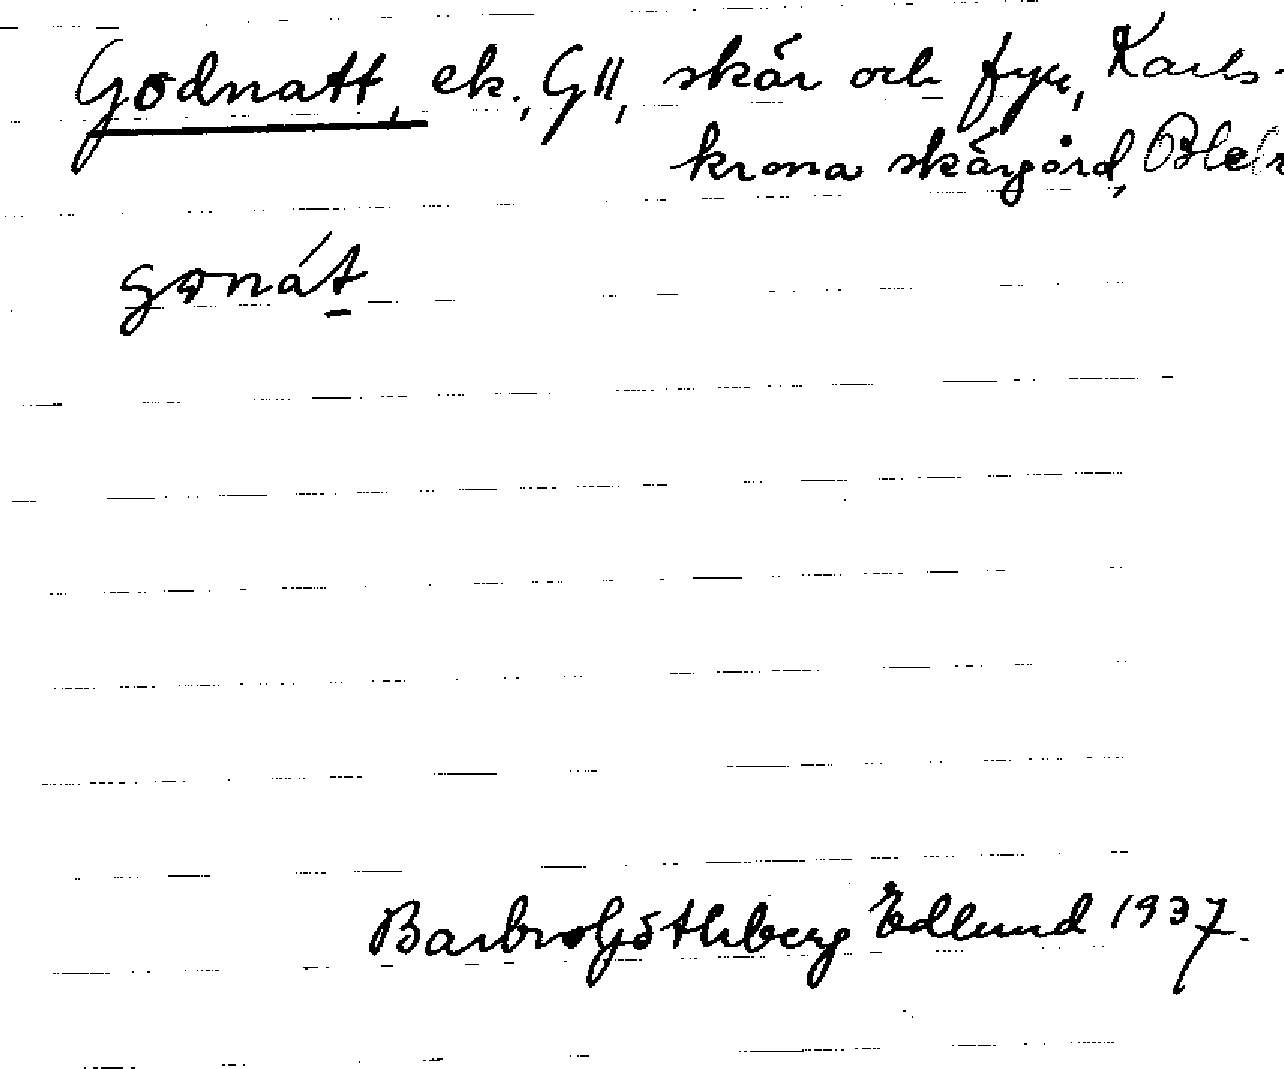 Godnatt, ek., GII, skär och fyr, Karls-
krona skärgård, Blek
gonát
Barbro Göthberg Edlund 1937.